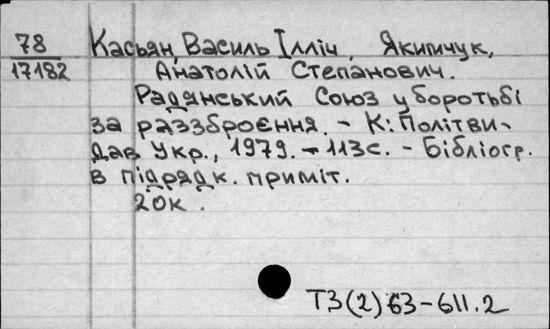 78 Касьян, Василь Ілліч, Якимчук,
17182 Анатолій Степанович.
Радянський Союз у боротьбі
за раззброєння. - К: Політви-
дав Укр., 1979. - 113с. - Бібліогр.
в підрядк. приміт.
20к.
ТЗ(2)63-611.2